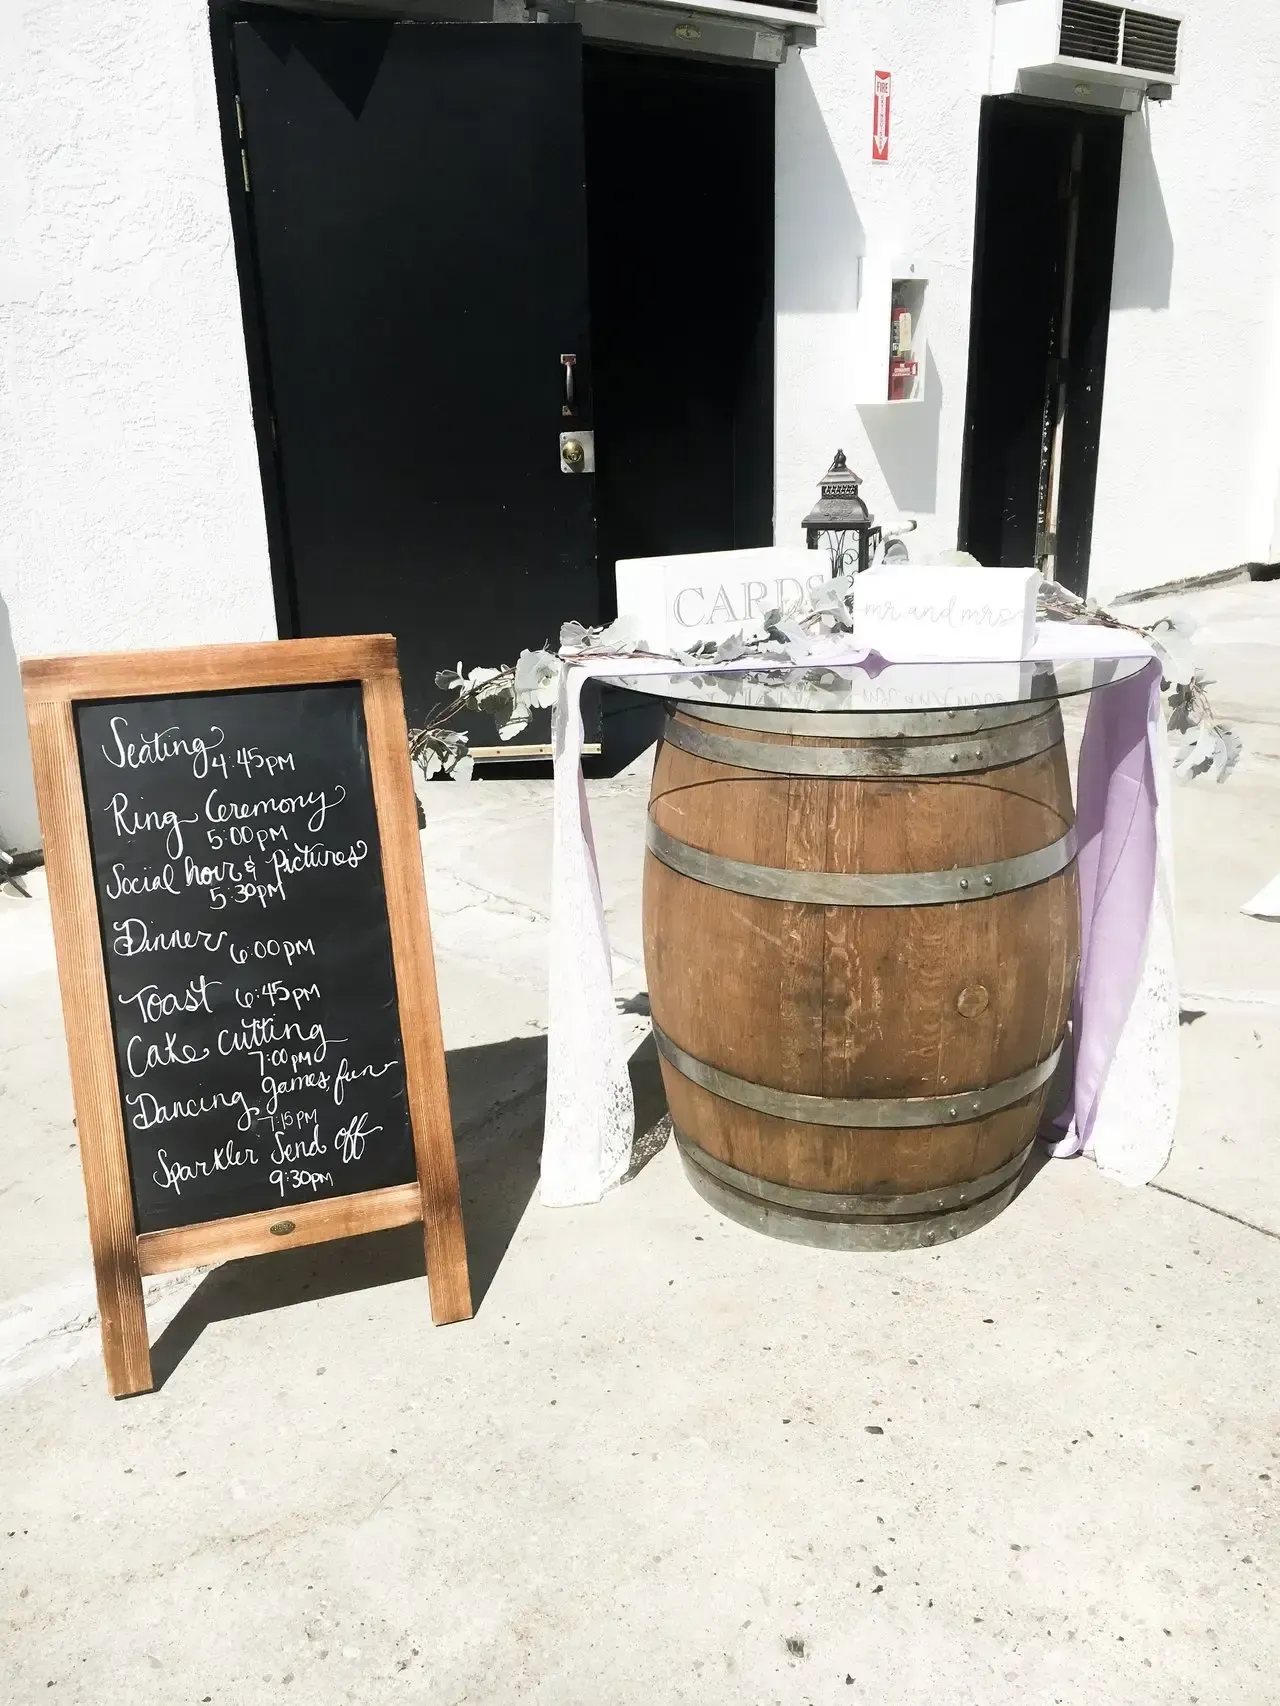 FIRE
CARDS
mr and mrs
Seating
4:45pm
Ring Ceremony
5:00pm
Social hour & Pictures
5:30pm
Dinner 6:00pm
Toast 6:45pm
Cake cutting
7:00pm
Dancing games, fun
7:15pm
Sparkler Send off
9:30pm